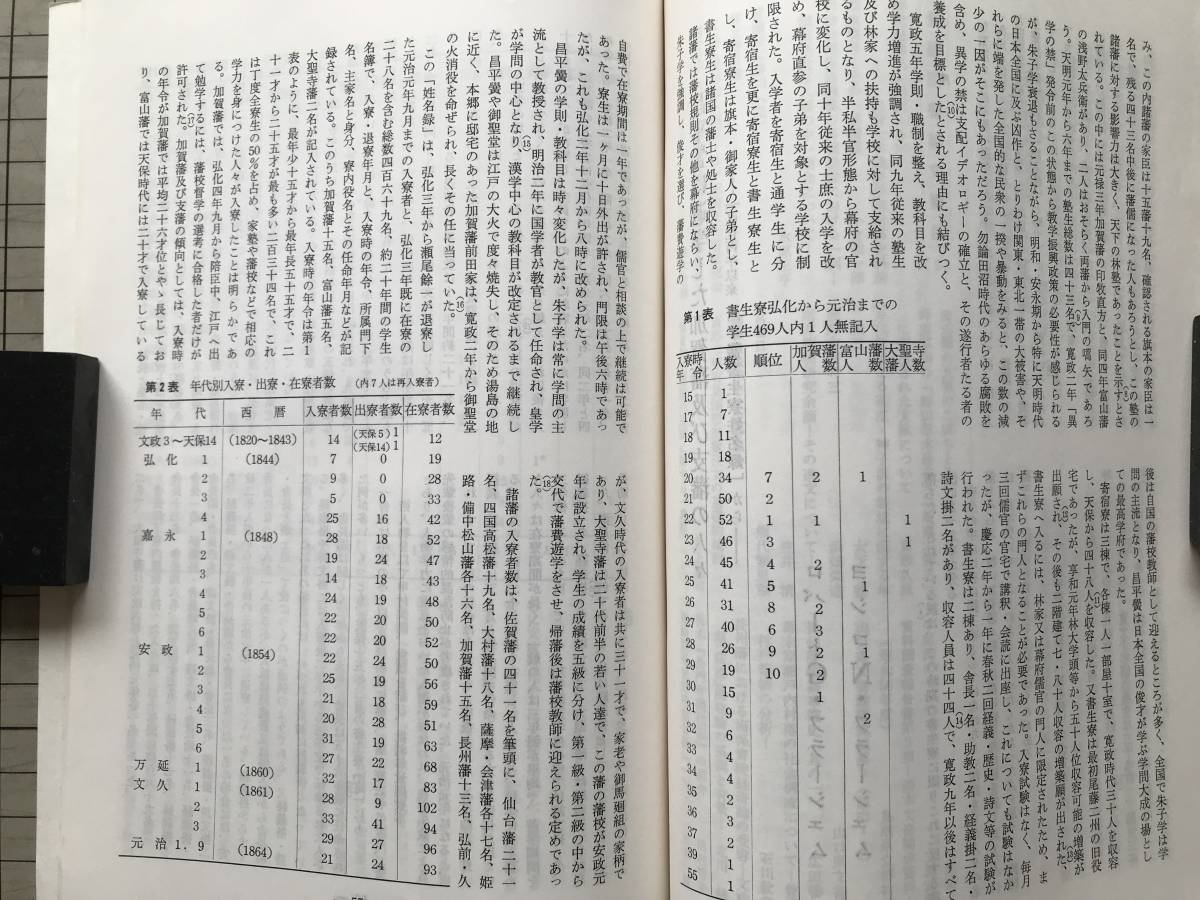 み、この内諸藩の家臣は十五藩十九名、確認される旗本の家臣は一
名で、残る四十三名中後に藩儒になった人もあろうとし、この塾の
諸藩に対する影響力は大きく、天下の林塾であったことを示さ
れている。この中には元禄三年加賀藩の印牧直方と、同四年富山藩
の浅野太兵衛があり、二人はおそらく両藩から入門の嚆矢であろ
う。天明元年から六年までの塾生総数は四十三名で、寛政二年「異
学の禁」発令前のこの状態から教学振興政策の必要性が感じられる
が、朱子学衰退もさることながら、明和・安永期から特に天明時代
の日本全国に及ぶ凶作と、とりわけ関東・東北一帯の大被害や、そ
れらに端を発した全国的な民衆の一揆や暴動をみると、この数の減
少の一因がそこにもあっただろう。勿論田沼時代のあらゆる腐敗を
含め、異学の禁は支配イデオロギーの確立と、その遂行者たる者の
養成を目標としたとされる理由にも結びつく。
寛政五年学則・職制を整え、教科目を改
め学力増進が強調され、同九年従来の塾生
及び林家への扶持も学校に対して支給され
るものとなり、半私半官形態から幕府の官
校に変化し、同十年従来の士庶の入学を改
め、幕府直参の子弟を対象とする学校に制
限された。入学者を寄宿生と通学生に分
け、寄宿生を更に寄宿寮生と書生寮生と
し、寄宿寮生は旗本・御家人の子弟とし、
書生寮生は諸国の藩士や処士を収容した。
諸藩では藩校規則その他を幕府にならい、
朱子学を強調し、俊才を選び、藩費遊学の
後は自国の藩校教師として迎えるところが多く、全国で朱子学は学
問の主流となり、昌平黌は日本全国の俊才が学ぶ学問大成の場とし
ての最高学府であった。
寄宿寮は三棟で、各棟一人一部屋十室で、寛政時代三十人を収容
し、天保から四十八人を収容した。(11)又書生寮は最初尾藤二州の旧役
宅であったが、享和元年林大学頭等から五十人位収容可能の増築が
出願され、(12)その後も二階建て七・八十人収容の増築願が出された。(13)
書生寮へ入るには、林家又は幕府儒官の門人に限定されたため、ま
ずこれらの門人となることが必要であった。入寮試験はなく、毎月
三回儒官の官宅で講釈・会読に出座し、これについても試験はなか
ったが、慶応二年から一年に春秋二回経義・歴史・詩文等の試験が
行われた。書生寮は二棟あり、舎長一名・助教二名・経義掛二名・
詩文掛二名があり、収容人員は四十四人で、(14)寛政九年以後はすべて
第1表 書生寮弘化から元治までの
学生469人内1人無記入
入寮時年令 人数 順位 加賀藩人数 富山藩人数 大聖寺藩人数
15 1
17 7
18 11
19 18
20 34 7 2 1
21 50 2
22 52 1 1 1
23 46 3 1
24 45 4 2
25 41 5 1
26 31 8 2
27 40 6 3
28 26 9 2 1
29 19 10 1
30 15
31 9 2
32 6
33 4
34 4
35 2
36 3
37 2
39 1
55 1
自費で在寮期間は一年であったが、儒官と相談の上で継続は可能で
あった。寮生は一ヶ月に十日外出が許され、門限は午後六時であっ
たが、これも弘化二年十二月から八時に改められた。
昌平黌の学則・教科目は時々変化したが、朱子学は常に学問の主
流として教授され、(15)明治二年に国学者が教官として任命され、皇学
が学問の中心となり、漢学中心の教科目が改定されるまで継続し
た。昌平黌や御聖堂は江戸の大火で度々焼失し、そのため湯島の地
に近く、本郷に邸宅のあった加賀藩前田家は、寛政二年から御聖堂
の火消役を命ぜられ、長くその任に当っていた。(16)
この「姓名録」は、弘化三年から瀬尾餘一が退寮し
た元治元年九月までの入寮者と、弘化三年既に在寮の
二十八名を含む総数四百六十九名、約二十年間の学生
名簿で、入寮・退寮年月と、入寮時の年令、所属門下
名、主家名と身分、寮内役名とその任命年月などが記
録されている。このうち加賀藩十五名、富山藩五名、
大聖寺藩二名が記入されている。入寮時の年令は第1
表のように、最年少十五才から最年長五十五才で、二
十一才から二十五才が最も多い二百三十四名で、これ
は丁度全寮生の50%を占め、家塾や藩校などで相応の
学力を身につけた人々が入寮したことは明らかであ
る。加賀藩では、弘化四年九月から陪臣、江戸へ出
て勉学するには、藩校督学の選考に合格した者だけが
許可された。(17)加賀藩及び支藩の傾向としては、入寮時
の年令が加賀藩では平均二十六才位とやゝ長じてお
り、富山藩では天保時代には二十才で入寮している
が、文久時代の入寮者は共に三十一才で、家老や御馬廻組の家柄で
あり、大聖寺藩は二十代前半の若い人達で、この藩の藩校が安政元
年に設立され、学生の成績を五級に分け、第一級・第二級の中から
交代で藩費遊学をさせ、帰藩後は藩校教師に迎えられる定めであっ
た。(18)
諸藩の入寮者数は、佐賀藩の四十一名を筆頭に、仙台藩二十一
名、四国高松藩十九名、大村藩十八名、薩摩・会津藩各十七名、姫
路・備中松山藩各十六名、加賀藩十五名、長州藩十三名、弘前・久
第2表 年代別入寮・出寮・在寮者数 (内7人は再入寮者)
年代 西暦 入寮者数 出寮者数 在寮者数
文政3～天保14 (1820～1843) 14 (天保5)1 (天保14)1 12
弘化 1 (1844) 7 0 19
2 9 0 28
3 5 0 33
4 25 16 42
嘉永 1 (1848) 28 18 52
2 19 24 47
3 14 18 43
4 24 19 48
5 22 20 50
6 22 20 52
安政 1 (1854) 22 24 50
2 25 19 56
3 21 18 59
4 20 28 51
5 31 19 63
6 27 22 68
万延 1 (1860) 32 17 83
文久 1 (1861) 28 9 102
2 33 41 94
3 29 27 96
元治1.9 (1864) 21 24 93